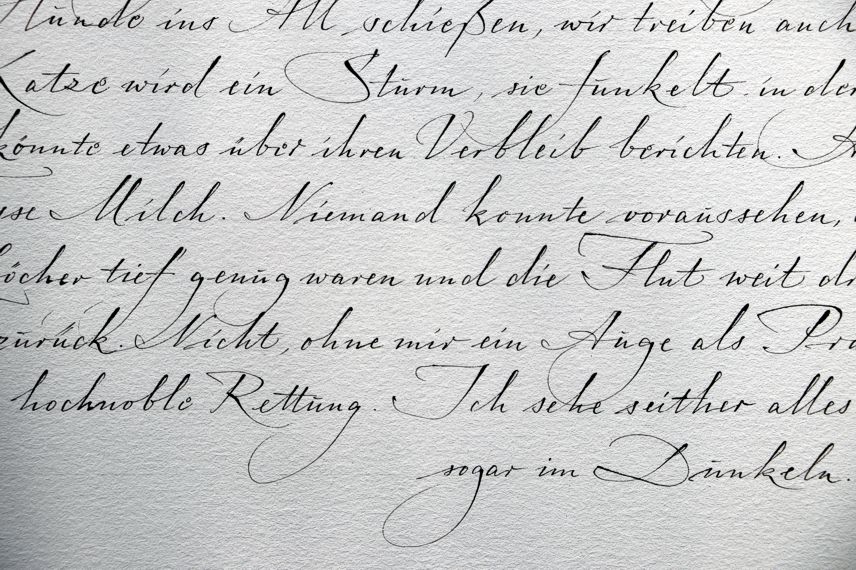 Hunde ins All schießen, wir treiben auch
Katze wird ein Sturm, sie funkelt in der
könnte etwas über ihren Verbleib berichten.
Milch. Niemand konnte voraussehen,
Löcher tief genug waren und die Flut weit
zurück. Nicht, ohne mir ein Auge als
hochnoble Rettung. Ich sehe seither alles
sogar im Dunkeln.